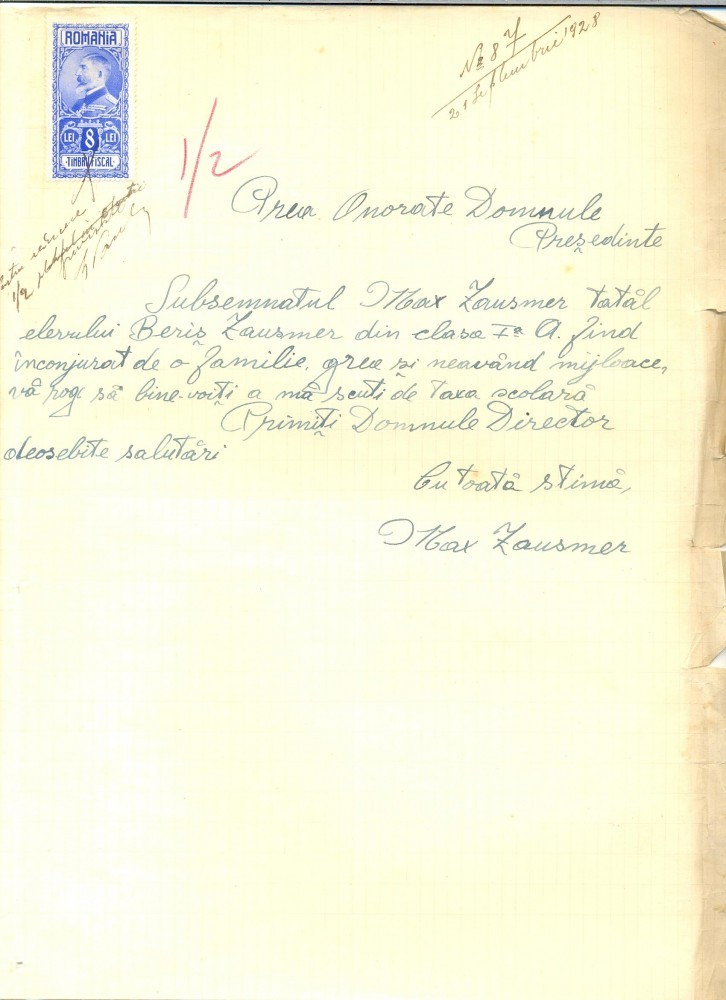 ROMANIA
LEI 8 LEI
TIMBRU FISCAL
№ 87
21 Septembrie 1928
1/2
1/2
Prea Onorate Domnule
Președinte
Subsemnatul Max Zausmer tatăl
elevului Beriș Zausmer din clasa Iª A. fiind
înconjurat de o familie, grea și neavând mijloace,
vă rog să bine-voiți a mă scuti de taxa școlară
Primiți Domnule Director
deosebite salutări
Cu toată stimă,
Max Zausmer